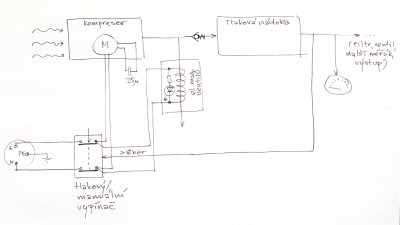 kompresor
Tlaková nádoba
M
25µ
el. mag.
ventil
(filtr, ventil
další měřák,
výstup)
L
PE
N
tlakový/
manuální
vypínač